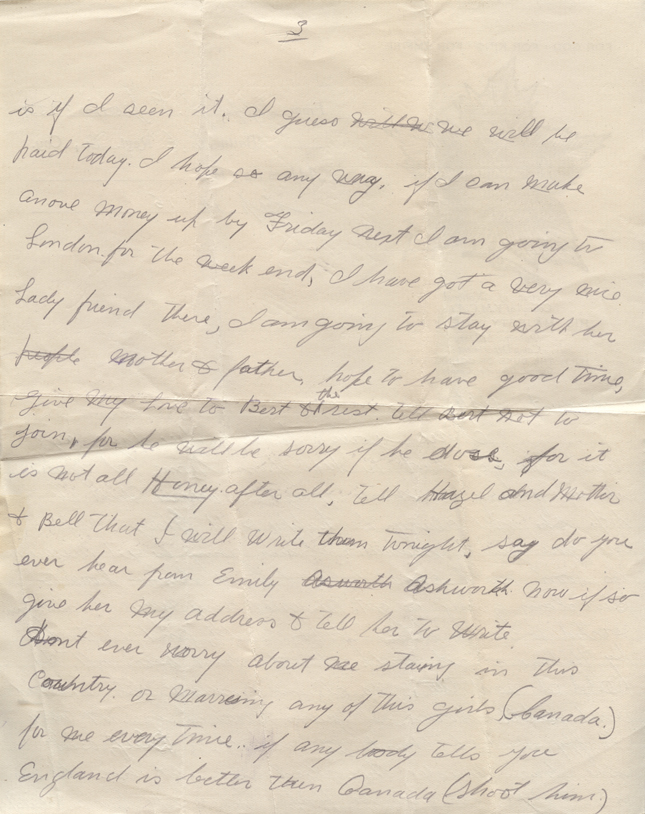 3
is if I seen it. I guess we will be
paid today. I hope so any way. if I can make
anove money up by Friday next I am going to
London for the week end, I have got a very nice
Lady friend there, I am going to stay with her
people mother & father, hope to have good time,
give my love to Bert & the rest. tell Bert not to
join, for he will be sorry if he does, for it
is not all Honey after all, tell Hazel and Mother
& Bell that I will write them tonight, say do you
ever hear from Emily Asworth Ashworth now if so
give her my address & tell her to write
Dont ever worry about me staing in this
Country. or marrying any of this girls (Canada.)
for me every time.. if any body tells you
England is better then Canada (shoot him)